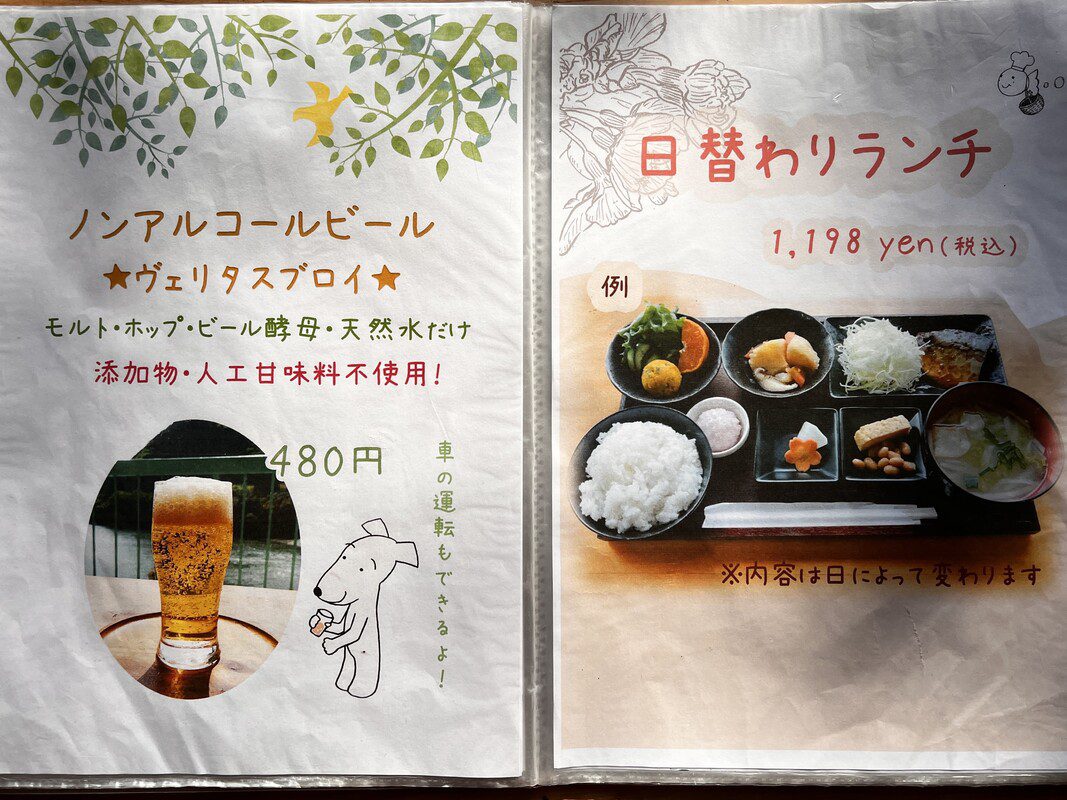 ノンアルコールビール
★ヴェリタスブロイ★
モルト・ホップ・ビール酵母・天然水だけ
添加物・人工甘味料不使用!
480円
車の運転もできるよ!
日替わりランチ
1,198 yen(税込)
例
※内容は日によって変わります